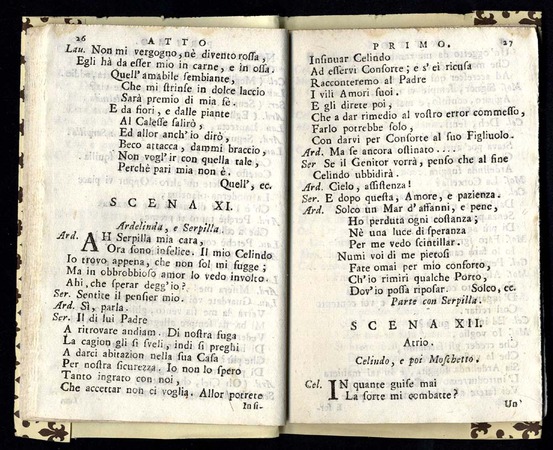 26
ATTO
Lau. Non mi vergogno, nè divento rossa,
Egli hà da esser mio in carne, e in ossa.
Quell'amabile sembiante,
Che mi strinse in dolce laccio
Sarà premio di mia fè.
E da fiori, e dalle piante
Al Calesse salirò,
Ed allor anch'io dirò,
Becco attacca, dammi braccio,
Non vogl'ir con quella tale,
Perchè pari mia non è.
Quell', ec.
SCENA XI.
Ardelinda, e Serpilla
Ard. AH Serpilla mia cara,
Ora sono infelice. Il mio Celindo
Io trovo appena, che non sol mi fugge;
Ma in obbrobbioso amor lo vedo involto.
Ahi, che sperar degg'io?
Ser. Sentite il pensier mio.
Ard. Sì, parla.
Ser. Il di lui Padre
A ritrovare andiam. Di nostra fuga
La cagion gli si sveli, indi si preghi
A darci abitazion nella sua Casa
Per nostra sicurezza. Io non lo spero
Tanto ingrato con noi,
Che accettar non ci voglia. Allor potrete
Insi-
PRIMO.
27
Insinuar Celindo
Ad esservi Consorte; e s'ei ricusa
Racconteremo al Padre
I vili Amori suoi.
E gli direte poi,
Che a dar rimedio al vostro error commesso,
Farlo potrebbe solo,
Con darvi per Consorte al suo Figliuolo.
Ard. Ma se ancora ostinato....
Ser Se il Genitor vorrà, penso che al fine
Celindo ubbidirà.
Ard. Cielo, assistenza!
Ser. E dopo questa, Amore, e pazienza.
Ard. Solco un Mar d'affanni, e pene,
Ho perduta ogni costanza;
Nè una luce di speranza
Per me vedo scintillar.
Numi voi di me pietosi
Fare omai per mio conforto,
Ch'io rimiri qualche Porto,
Dov'io possa riposar. Solco, ec.
Parte con Serpilla.
SCENA XII.
Atrio.
Celindo, e poi Moschetto.
Cel. IN quante guise mai
La sorte mi combatte?
Un